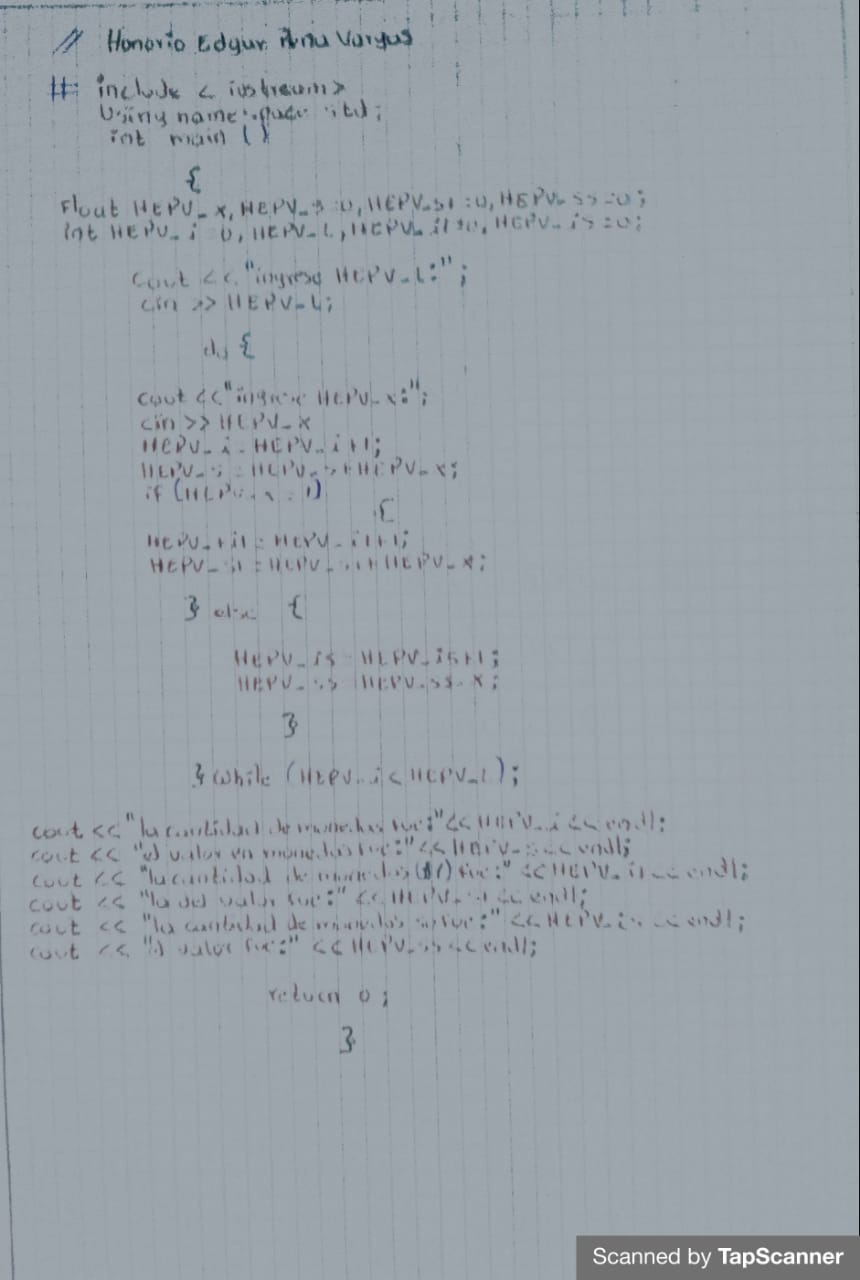 // Honorio Edgar Vargas
# include < iostream>
Using namespace std;
int main ()
{
Float HEPV_x, HEPV_s=0, HEPV_s1=0, HEPV_ss=0;
int HEPV_i=0, HEPV_L, HEPV_i1=0, HEPV_is=0;
cout << "ingrese HEPV_L:";
cin >> HEPV_L;
do {
cout <<"ingrese HEPV_x:";
cin >> HEPV_x
HEPV_i=HEPV_i+1;
HEPV_s=HEPV_s+HEPV_x;
if (HEPV_x 1)
{
HEPV_i1+1;
HEPV_x;
} else {
HEPV_is=HEPV_is+1;
HEPV_ss HEPV_ss x;
}
} while (HEPV_i<HEPV_L);
cout <<"la cantidad de monedas fue:"<<HEPV_i<<endl;
cout << "el valor en monedas fue:"<<HEPV_s<<endl;
cout << "la cantidad de monedas fue:" <<HEPV_i1<<endl;
cout << "valor fue:" <<HEPV_s1<<endl;
cout << "la cantidad de monedas fue:" <<HEPV_is<<endl;
cout << valor fue:" <<HEPV_ss<<endl;
return 0;
}
Scanned by TapScanner